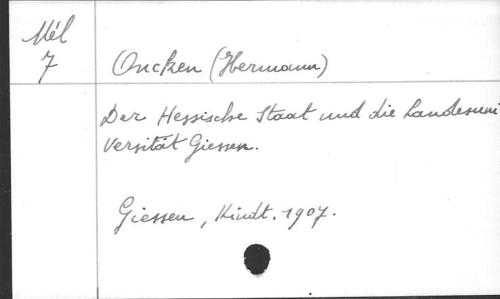 Mél
7
Oncken (Hermann)
Der Hessische Staat und die Landesuni
versität Giessen.
Giessen, Kindt. 1907.